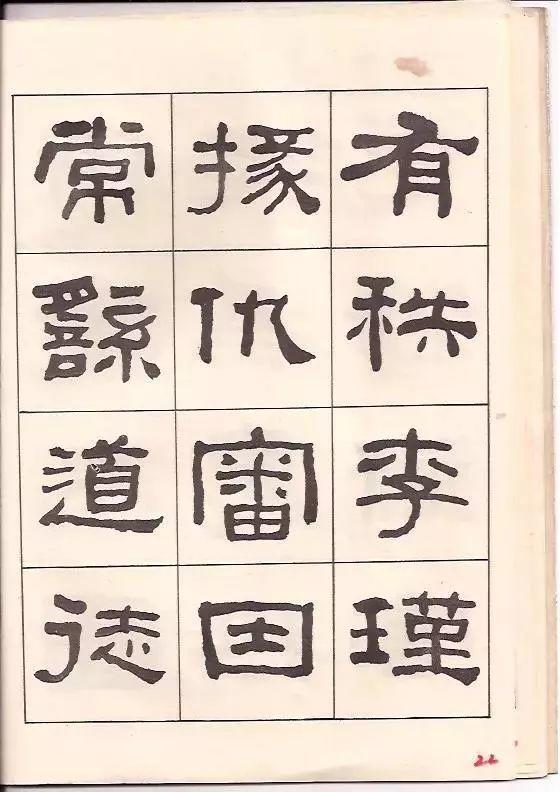 有秩李瑾
掾仇審因
常繇道徒
22